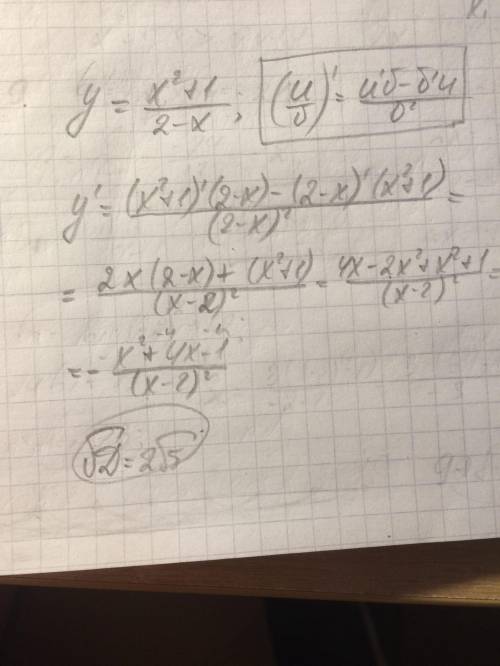 y = \frac{x^2+1}{2-x}; \left(\frac{u}{б}\right)' = \frac{u'б-б'u}{б^2}
y' = \frac{(x^2+1)'(2-x)-(2-x)'(x^2+1)}{(2-x)^2} =
= \frac{2x(2-x)+(x^2+1)}{(x-2)^2} = \frac{4x-2x^2+x^2+1}{(x-2)^2} =
= -\frac{x^2+4x-1}{(x-2)^2}
\sqrt{D} = 2\sqrt{5}